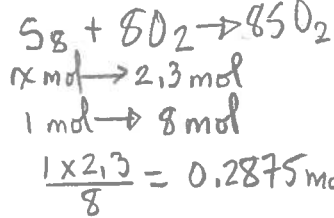 S8 + 8O2 → 8SO2
x mol → 2,3 mol
1 mol → 8 mol
1 x 2,3 / 8 = 0.2875 mo